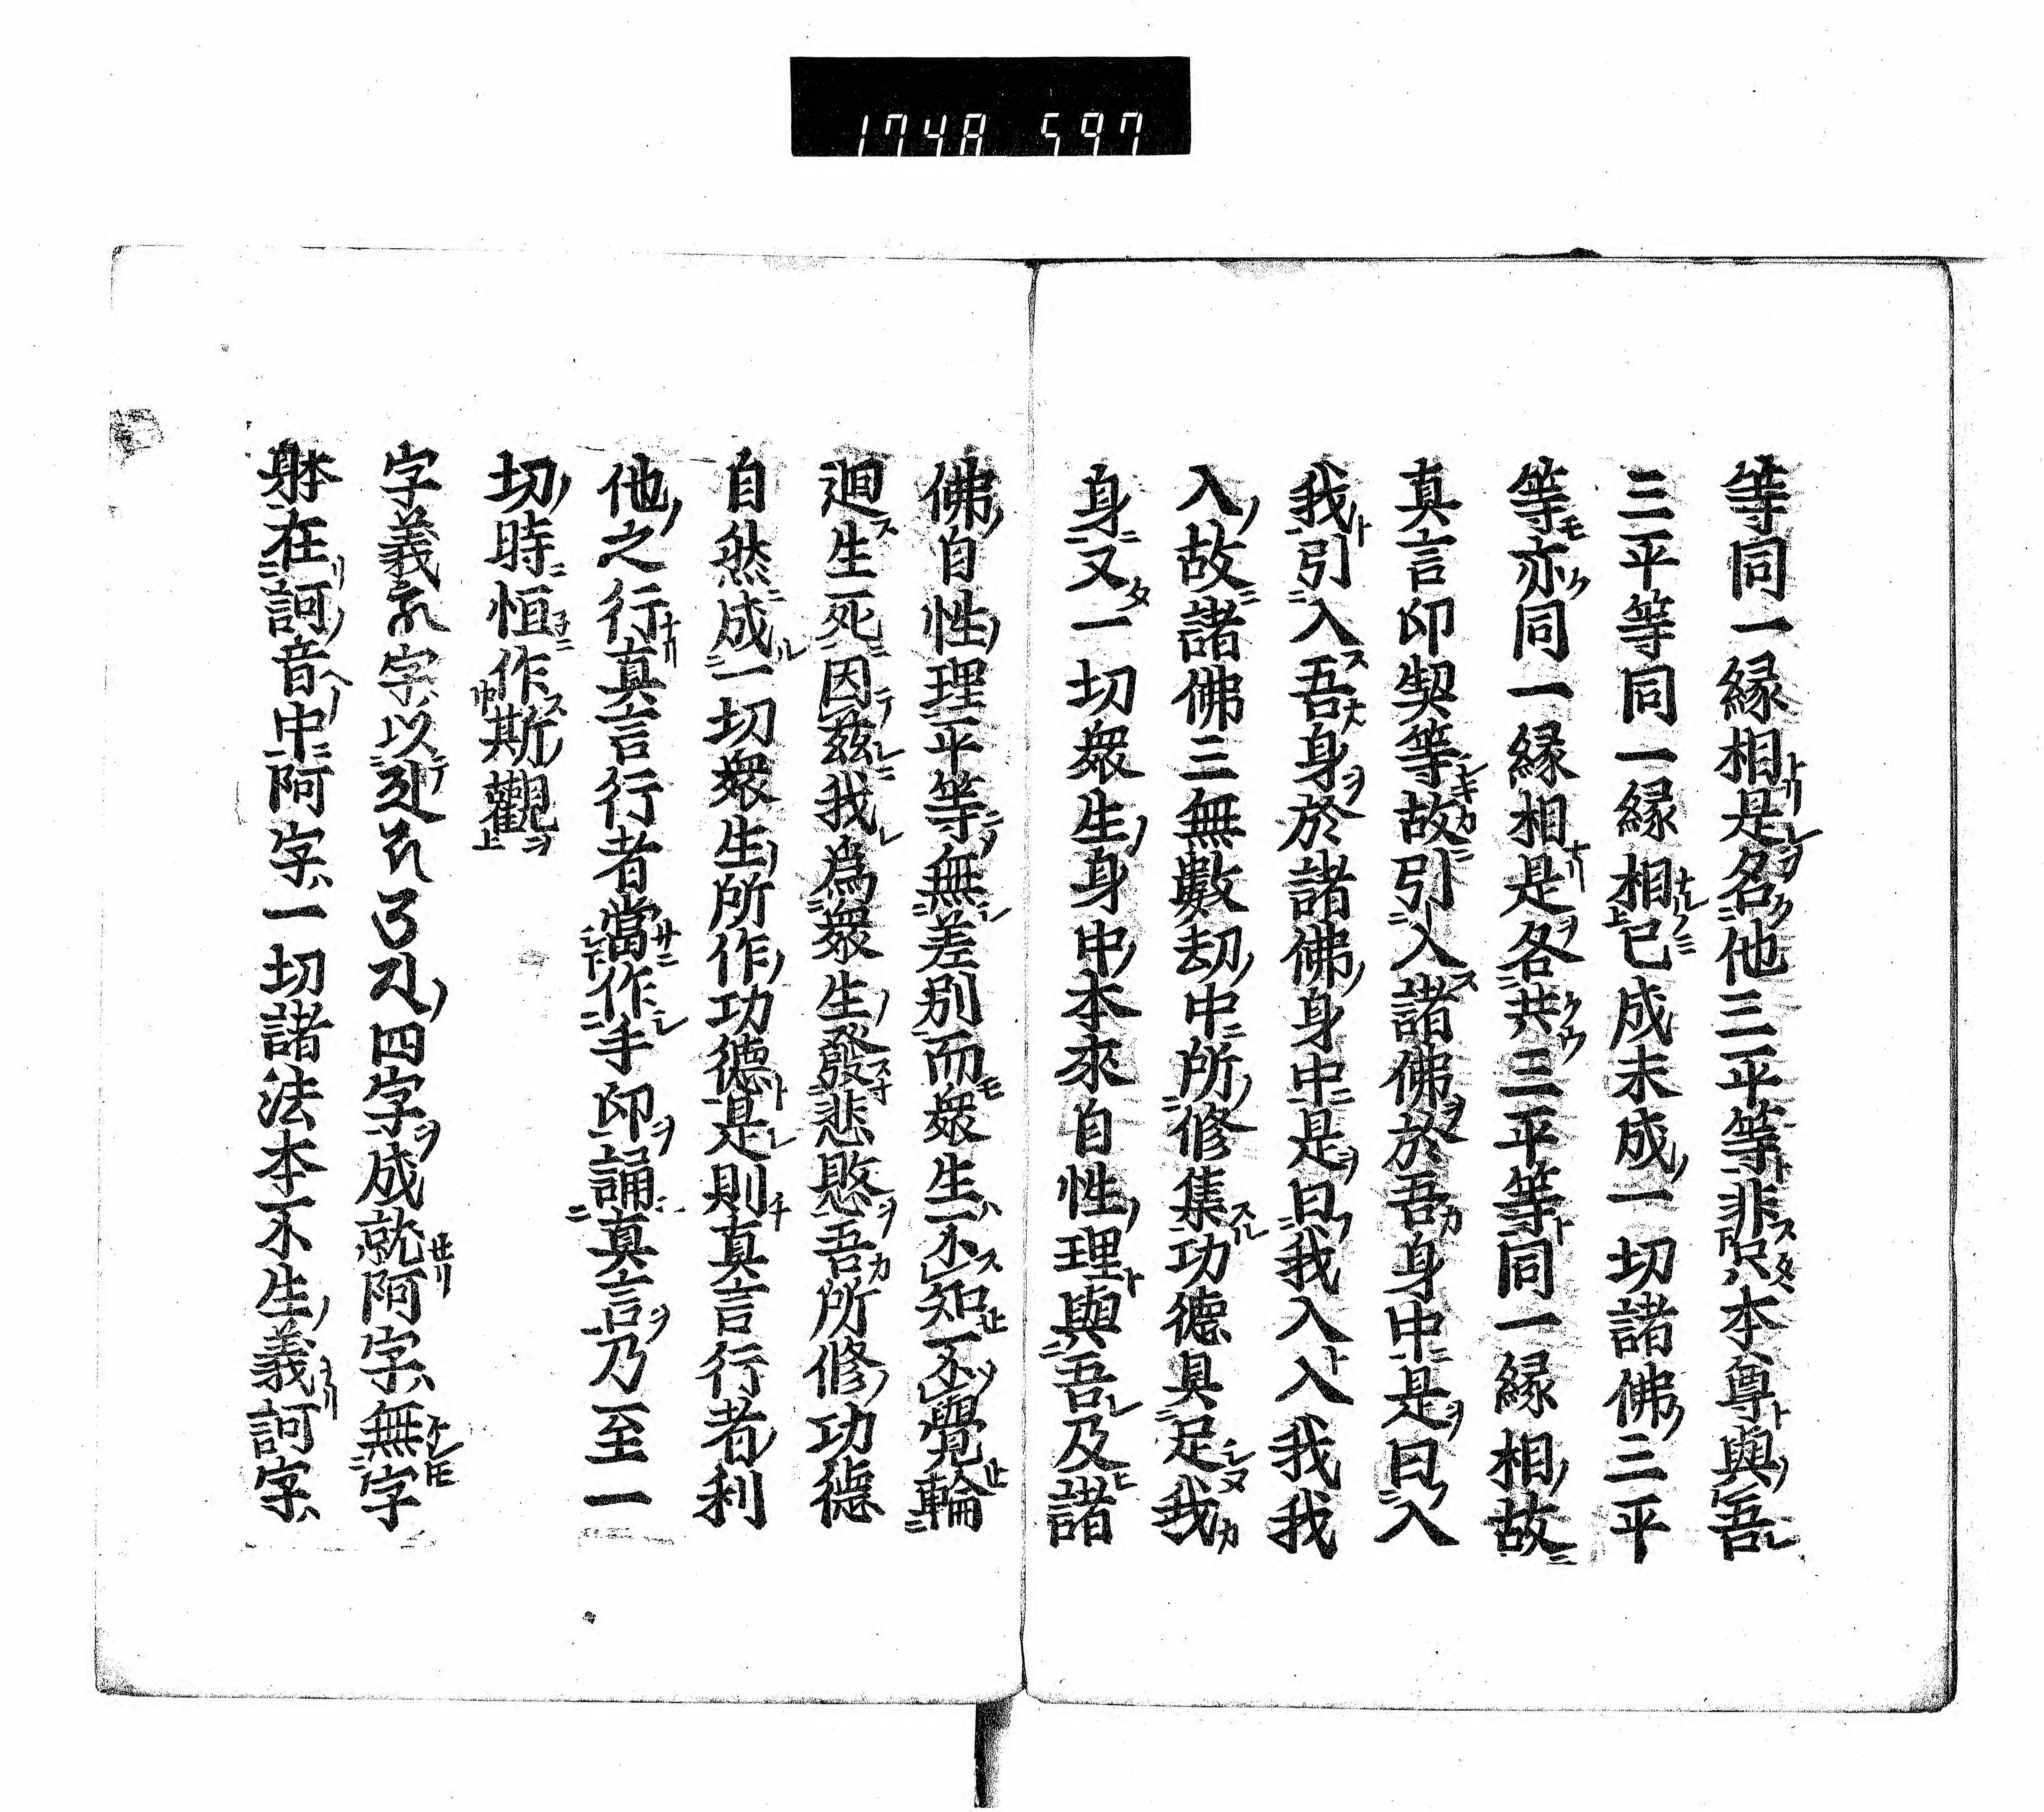 1748 597
等同一縁相是名他三平等非只本尊與吾
三平等同一縁相已成未成一切諸佛三平
等亦同一縁相是各共三平等同一縁相故
真言印契等故引入諸佛於吾身中是曰入
我引入吾身於諸佛身中是曰我入入我我
入故諸佛三無數劫中所修集功德具足我
身又一切衆生身中本來自性理與吾及諸
佛自性理平等無差別而衆生不知不覺輪
迴生死因茲我為衆生發悲愍吾所修功德
自然成一切衆生所作功德是則真言行者利
他之行真言行者當作手印誦真言乃至一
切時恒作斯觀
字義字以四字成就阿字無字
躰在訶音中阿字一切諸法本不生義訶字